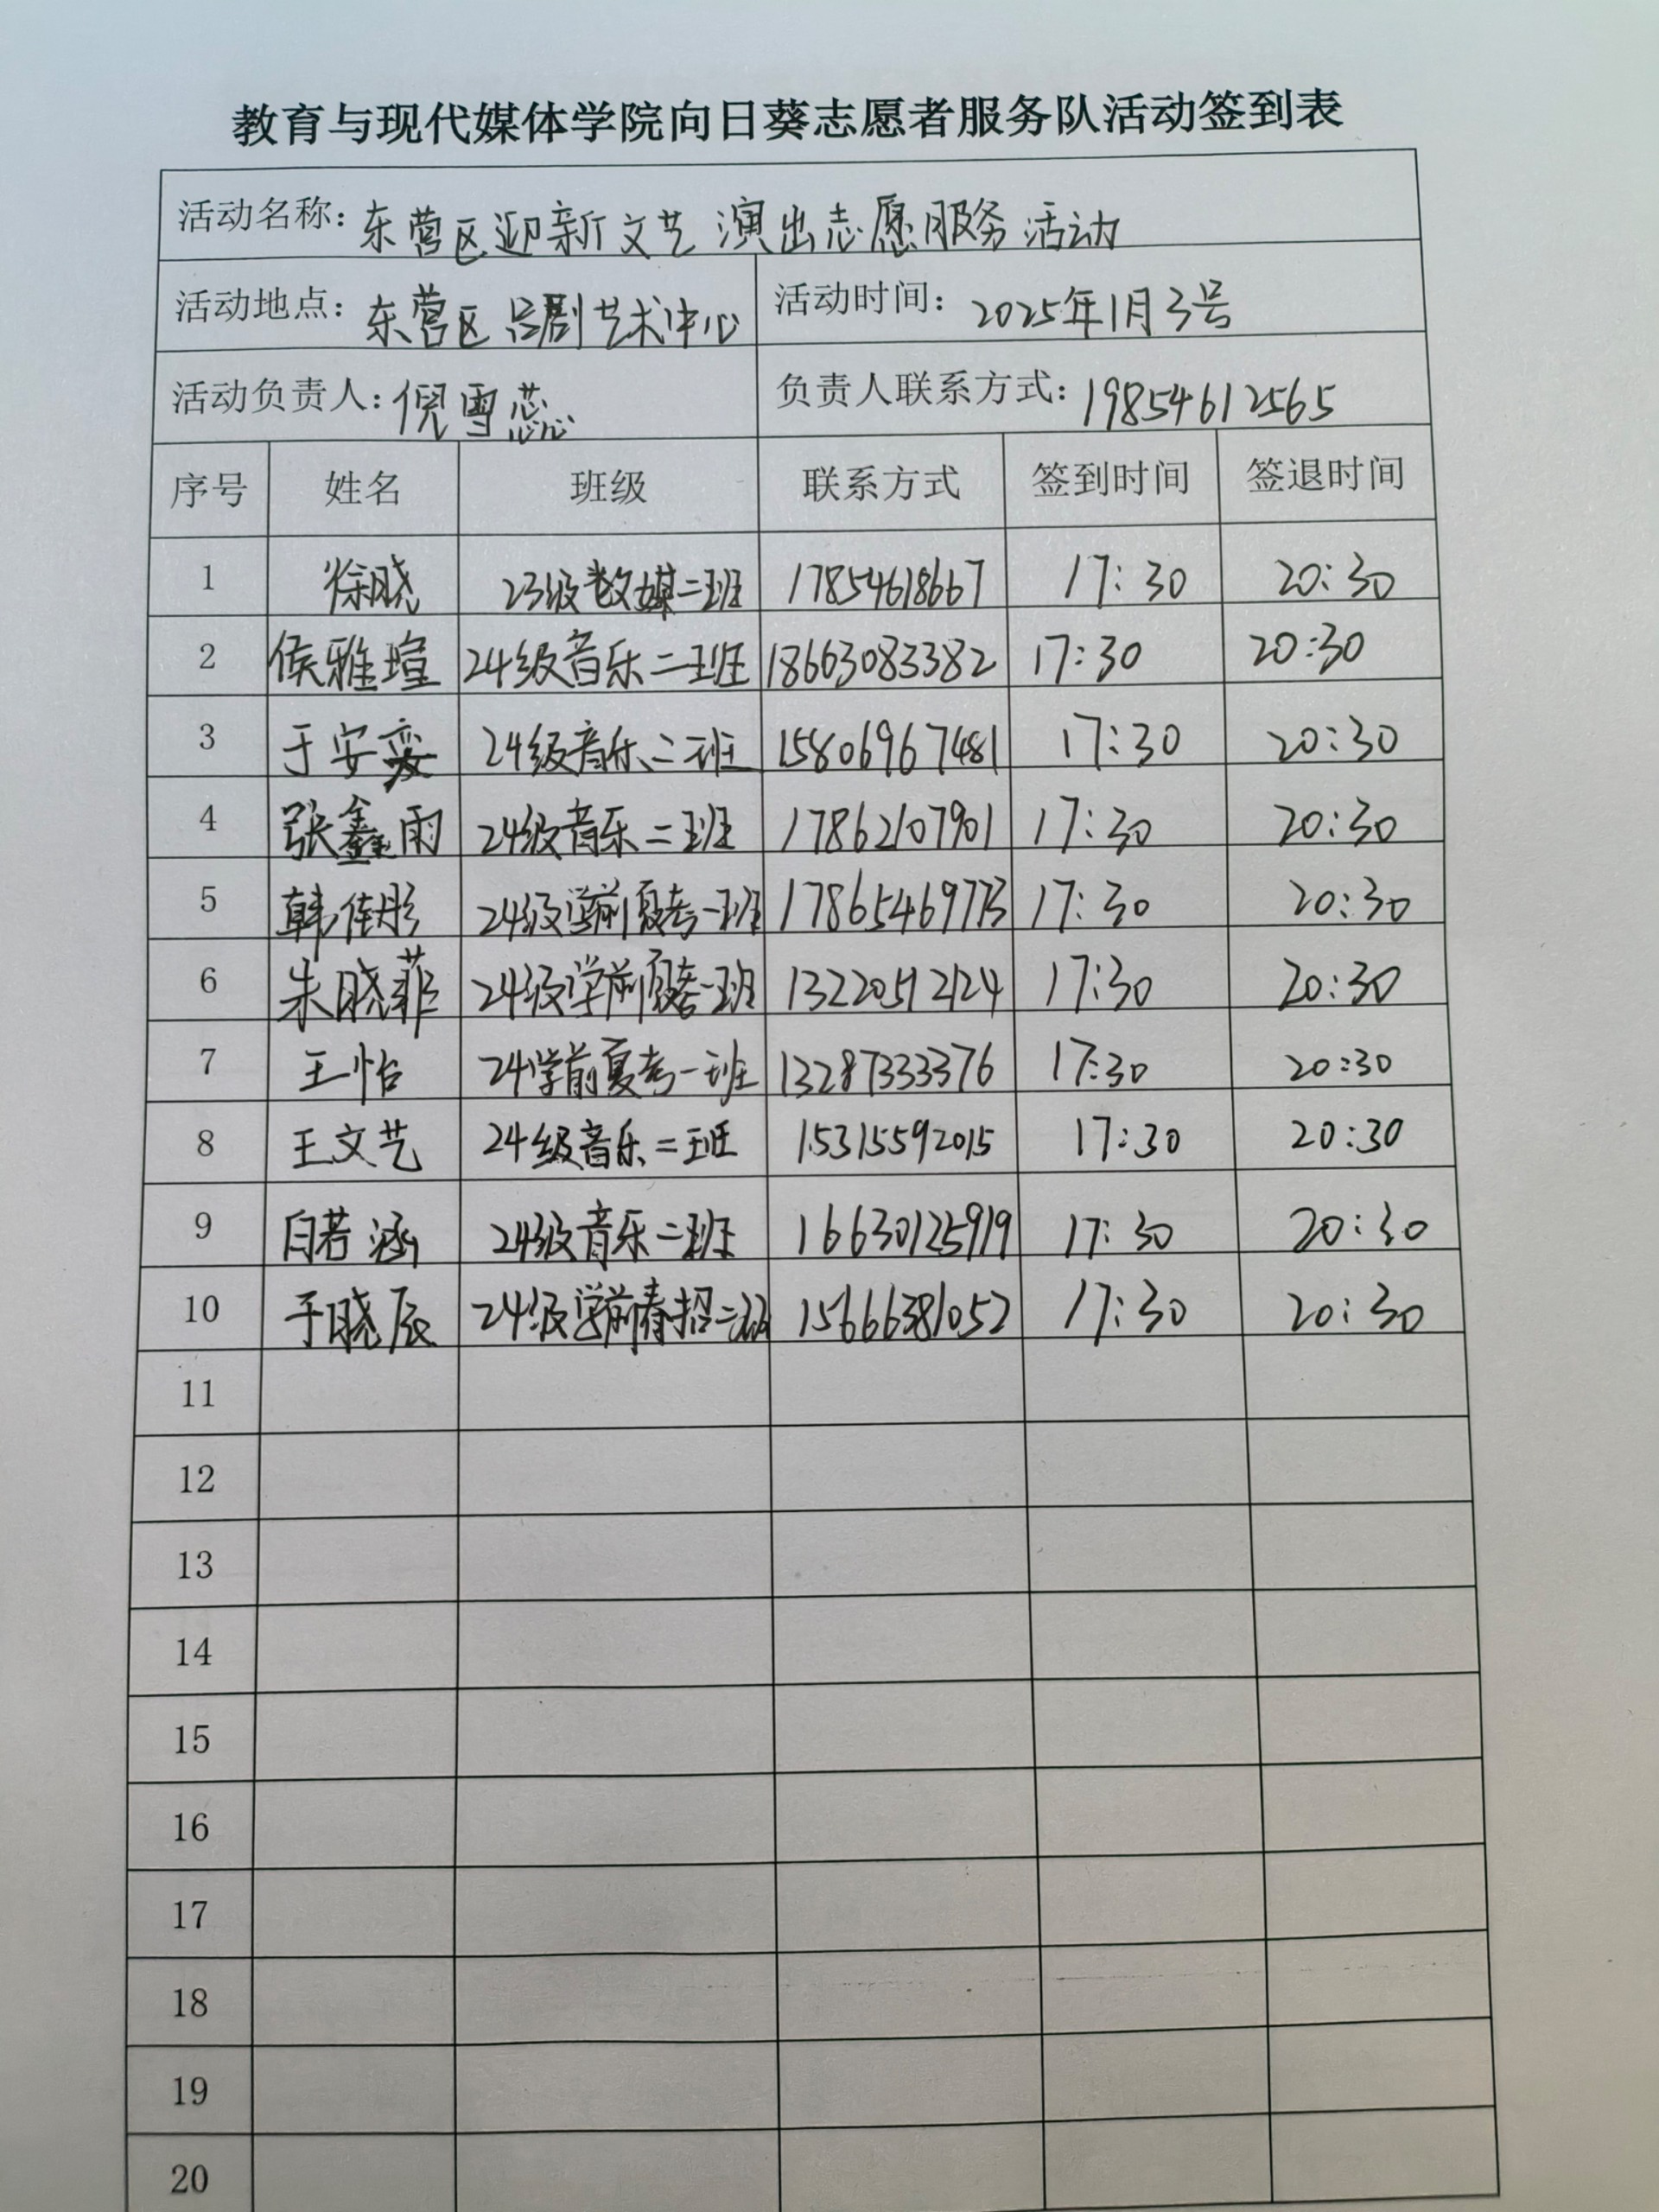 教育与现代媒体学院向日葵志愿者服务队活动签到表
活动名称：东营区迎新文艺演出志愿服务活动
活动地点：东营区吕剧艺术中心 活动时间：2025年1月3号
活动负责人：倪雪蕊 负责人联系方式：19854612565
序号 姓名 班级 联系方式 签到时间 签退时间
1 徐晓 23级数媒二班 17854618667 17:30 20:30
2 侯雅瑄 24级音乐二班 18663083382 17:30 20:30
3 于安 24级音乐二班 15806967481 17:30 20:30
4 张鑫雨 24级音乐二班 17862107901 17:30 20:30
5 韩佳彤 24级学前夏考一班 17:30 20:30
6 朱晓菲 24级学前夏考一班 13220512124 17:30 20:30
7 王怡 24学前夏考一班 13287333376 17:30 20:30
8 王文艺 24级音乐二班 15315592015 17:30 20:30
9 白若涵 24级音乐二班 16630125919 17:30 20:30
10 于晓辰 24级学前春招二班 15666381052 17:30 20:30
11
12
13
14
15
16
17
18
19
20